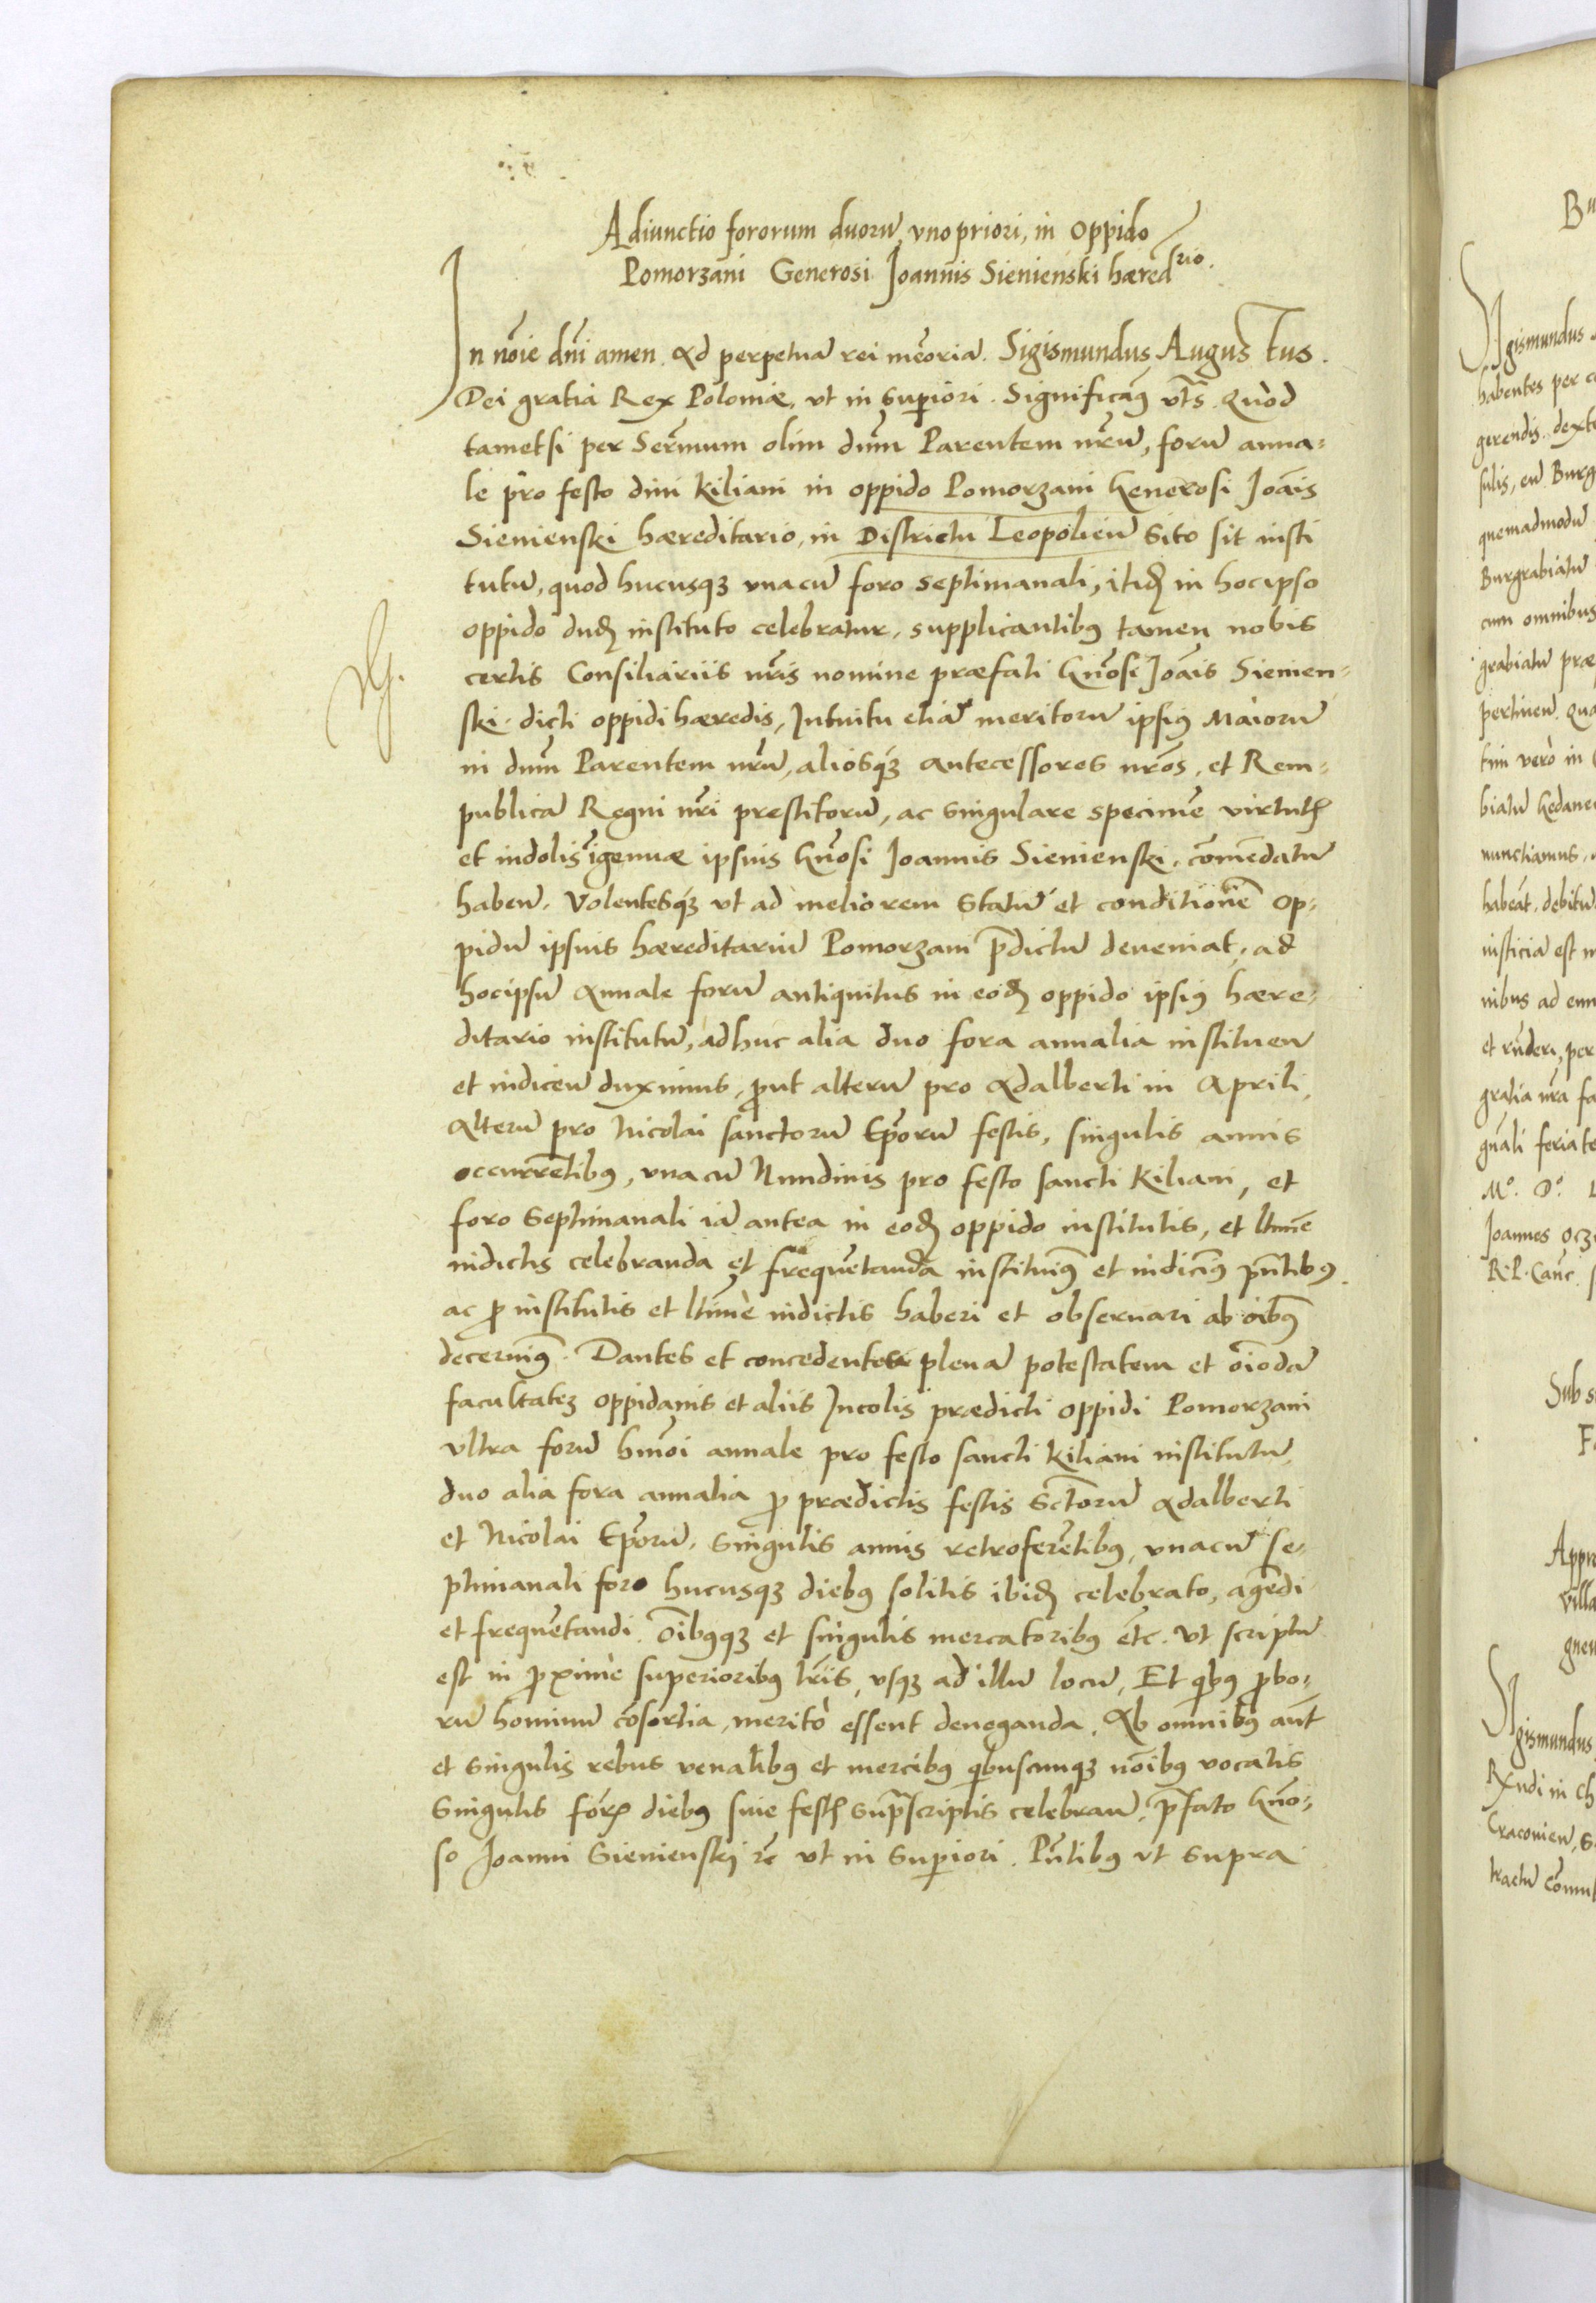 Adiunctio fororum duorũ, vno priori, in oppido
Pomorzani Generosi Joannis Sienienski hæred^rio.
In nõie dñi amen. Ad perpetuã rei mẽoriã. Sigismundus Augustus.
Dei gratia Rex Poloniæ, vt in superiori. Significam9 vts. Quòd
tametsi per Serm̃um olim dñm Parentem nr̃ũ, forũ annua-
le pro festo diui Kiliani in oppido Pomorzani Generosi Joãis
Sienienski hæreditario, in Districtu Leopolieñ sito sit insti
tutũ, quod hucusqʒ vnacũ foro septimanali, itid̃ in hocipso
oppido dud̃ instituto celebratur, supplicantib9 tamen nobis
certis Consiliariis nr̃is nomine præfati Gñosi Joãis Sienien-
ski dicti oppidi hæredis, Intuitu etiã meritorũ ipsi9 Maiorũ
in dñm Parentem nr̃ũ, aliosqʒ antecessores nr̃os, et Rem-
publicã Regni nr̃i præstitorũ, ac singulare specimẽ virtut̃
et indolis ĩgenuæ ipsius Gñosi Joannis Sienienski, cõmẽdatũ
habeñ. Volentesqʒ vt ad meliorem statũ et conditionẽ op-
pidũ ipsius hæreditariũ Pomorzani p̃dictũ deueniat, ad
hocipsũ Annale forũ antiquitus in eod̃ oppido ipsi9 hære-
ditario institutũ, adhuc alia duo fora annalia instituen̄
et indicen̄ duximus, ꝓut alterũ pro Adalberti in Aprili,
Alterũ pro Nicolai sanctorũ Ep̃orũ festis, singulis annis
occurrẽtib9, vnacũ Nundinis pro festo sancti Kiliani, et
foro septimanali iã antea in eod̃ oppido institutis, et ltimẽ
indictis celebranda et frequẽtanda instituim9 et indicim9 pñtib9.
ac ꝓ institutis et ltimè indictis haberi et obseruari ab oĩb9
decernim9. Dantes et concedentes plenã potestatem et oĩodã
facultatẽ oppidanis et aliis Incolis prædicti oppidi Pomorzani
vltra forũ hm̃oi annale pro festo sancti Kiliani institutũ,
duo alia fora annalia ꝓ prædictis festis sctorũ Adalberti
et Nicolai Ep̃orũ, singulis annis retroferẽtib9, vnacũ se-
ptimanali foro hucusqʒ dieb9 solitis ibid̃ celebrato, agẽdi
et frequẽtandi. Oĩb9qʒ et singulis mercatorib9 etc. vt scriptũ
est in ꝓximè superiorib9 lr̃is, vsqʒ ad illũ locũ, Et qb9 ꝓbo-
rũ hominũ cõsortia, meritò essent deneganda. Ab omnib9 aũt
et singulis rebus venalib9 et mercib9 qbuscunqʒ nõib9 vocatis
Singulis forꝝ dieb9 siue fest̃ sup̃scriptis celebran̄. p̃fato Gño-
so Joanni Sienienski ⁊c vt in superiori. Pñtib9 vt supra